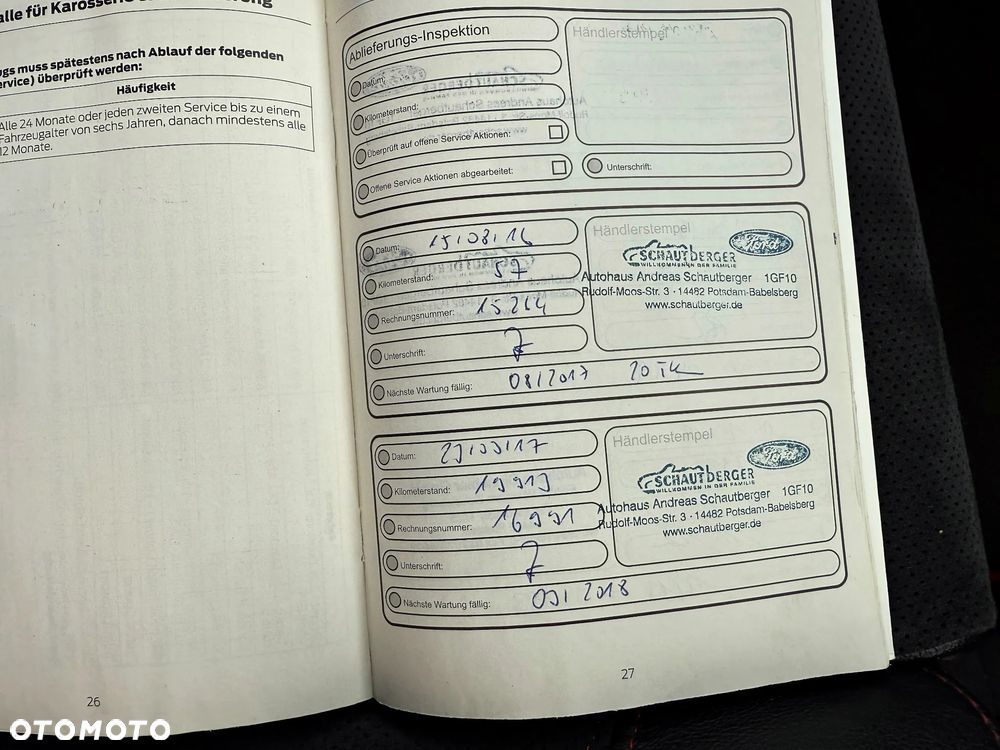 alle für Karosserie
ugs muss spätestens nach Ablauf der folgenden
ervice) überprüft werden:
Häufigkeit
Alle 24 Monate oder jeden zweiten Service bis zu einem
Fahrzeugalter von sechs Jahren, danach mindestens alle
12 Monate.
26
Ablieferungs-Inspektion
Händlerstempel
Datum:
Kilometerstand:
Überprüft auf offene Service Aktionen:
Offene Service Aktionen abgearbeitet:
Unterschrift:
Datum: 15/08/16
Kilometerstand: 57
Rechnungsnummer: 15264
Unterschrift:
Nächste Wartung fällig: 08/2017 20 TK
Händlerstempel
SCHAUTBERGER Ford
WILLKOMMEN IN DER FAMILIE
Autohaus Andreas Schautberger 1GF10
Rudolf-Moos-Str. 3 · 14482 Potsdam-Babelsberg
www.schautberger.de
Datum: 29/09/17
Kilometerstand: 19919
Rechnungsnummer: 16991
Unterschrift:
Nächste Wartung fällig: 09/2018
Händlerstempel
SCHAUTBERGER Ford
WILLKOMMEN IN DER FAMILIE
Autohaus Andreas Schautberger 1GF10
Rudolf-Moos-Str. 3 · 14482 Potsdam-Babelsberg
www.schautberger.de
27
OTOMOTO